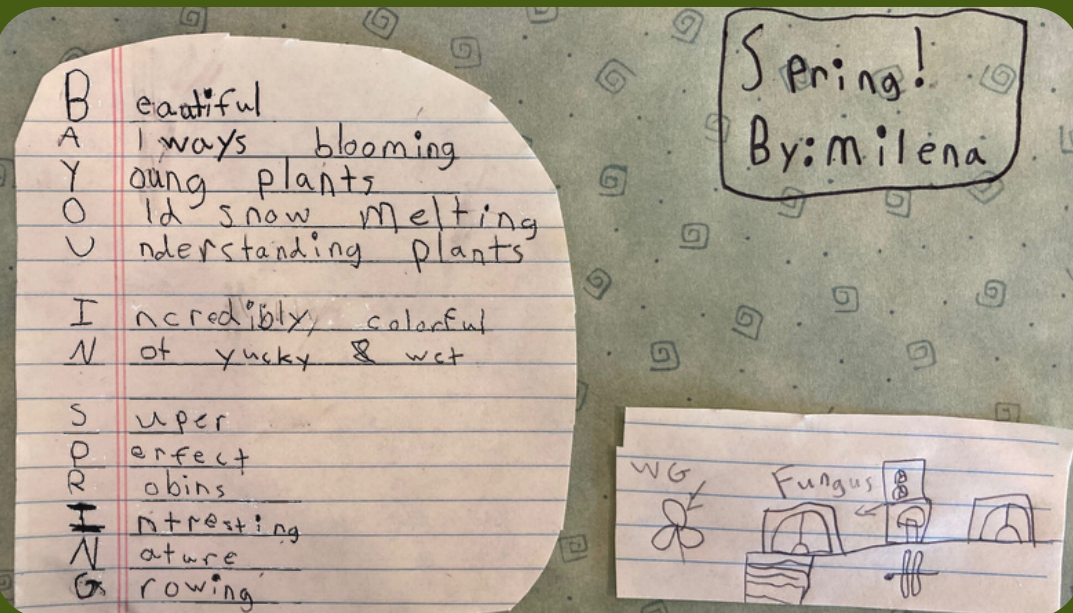 Beautiful
Always blooming
Young plants
Old snow melting
Understanding plants
Incredibly colorful
Not yucky & wet
Super
Perfect
Robins
Intresting
Nature
Growing
Spring!
By: milena
WG
Fungus